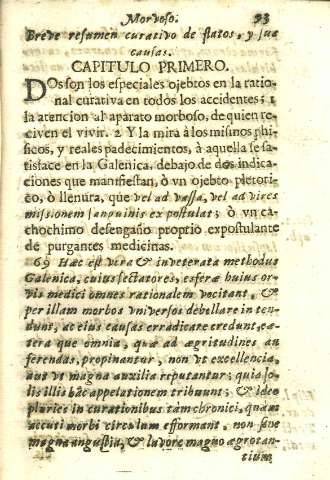 Morboso. 93
Breve resumen curativo de flatos, y sus
causas.
CAPITULO PRIMERO.
DOs son los especiales ojebtos en la ratio-
nal curativa en todos los accidentes; 1
la atencion al aparato morboso, de quien re-
civen el vivir. 2 Y la mira à los misinos phi-
sicos, y reales padecimientos, à aquella se sa-
tisface en la Galenica, debajo de dos indica-
ciones que manifiestan, ò vn ojebto pletori-
co, ò llenura, que vel ad vassa, vel ad vires
missionem sanguinis expostulas; ò vn ca-
chochimo desengaño proprio expostulante
de purgantes medicinas.
69 Hæc est vira & inveterata methodus
Galenica, cuius sectatores, esferæ huius or-
vis medici omnes rationalem vocitant, &
per illam morbos vniversos debellare in ten-
dunt, at eius causas erradicare credunt, cæ-
tera que omnia, quæ ad ægritudines au
ferendas, propinantur, non vt excellencia,
aut vt magna auxilia reputantur; quia so-
lis illis hæc appelationem tribuunt; & ideo
pluries in curationibus tam chronici, quàm
accuti morbi circulum efformant, non sine
magna angustia, & lavore magno ægrotan-
tium